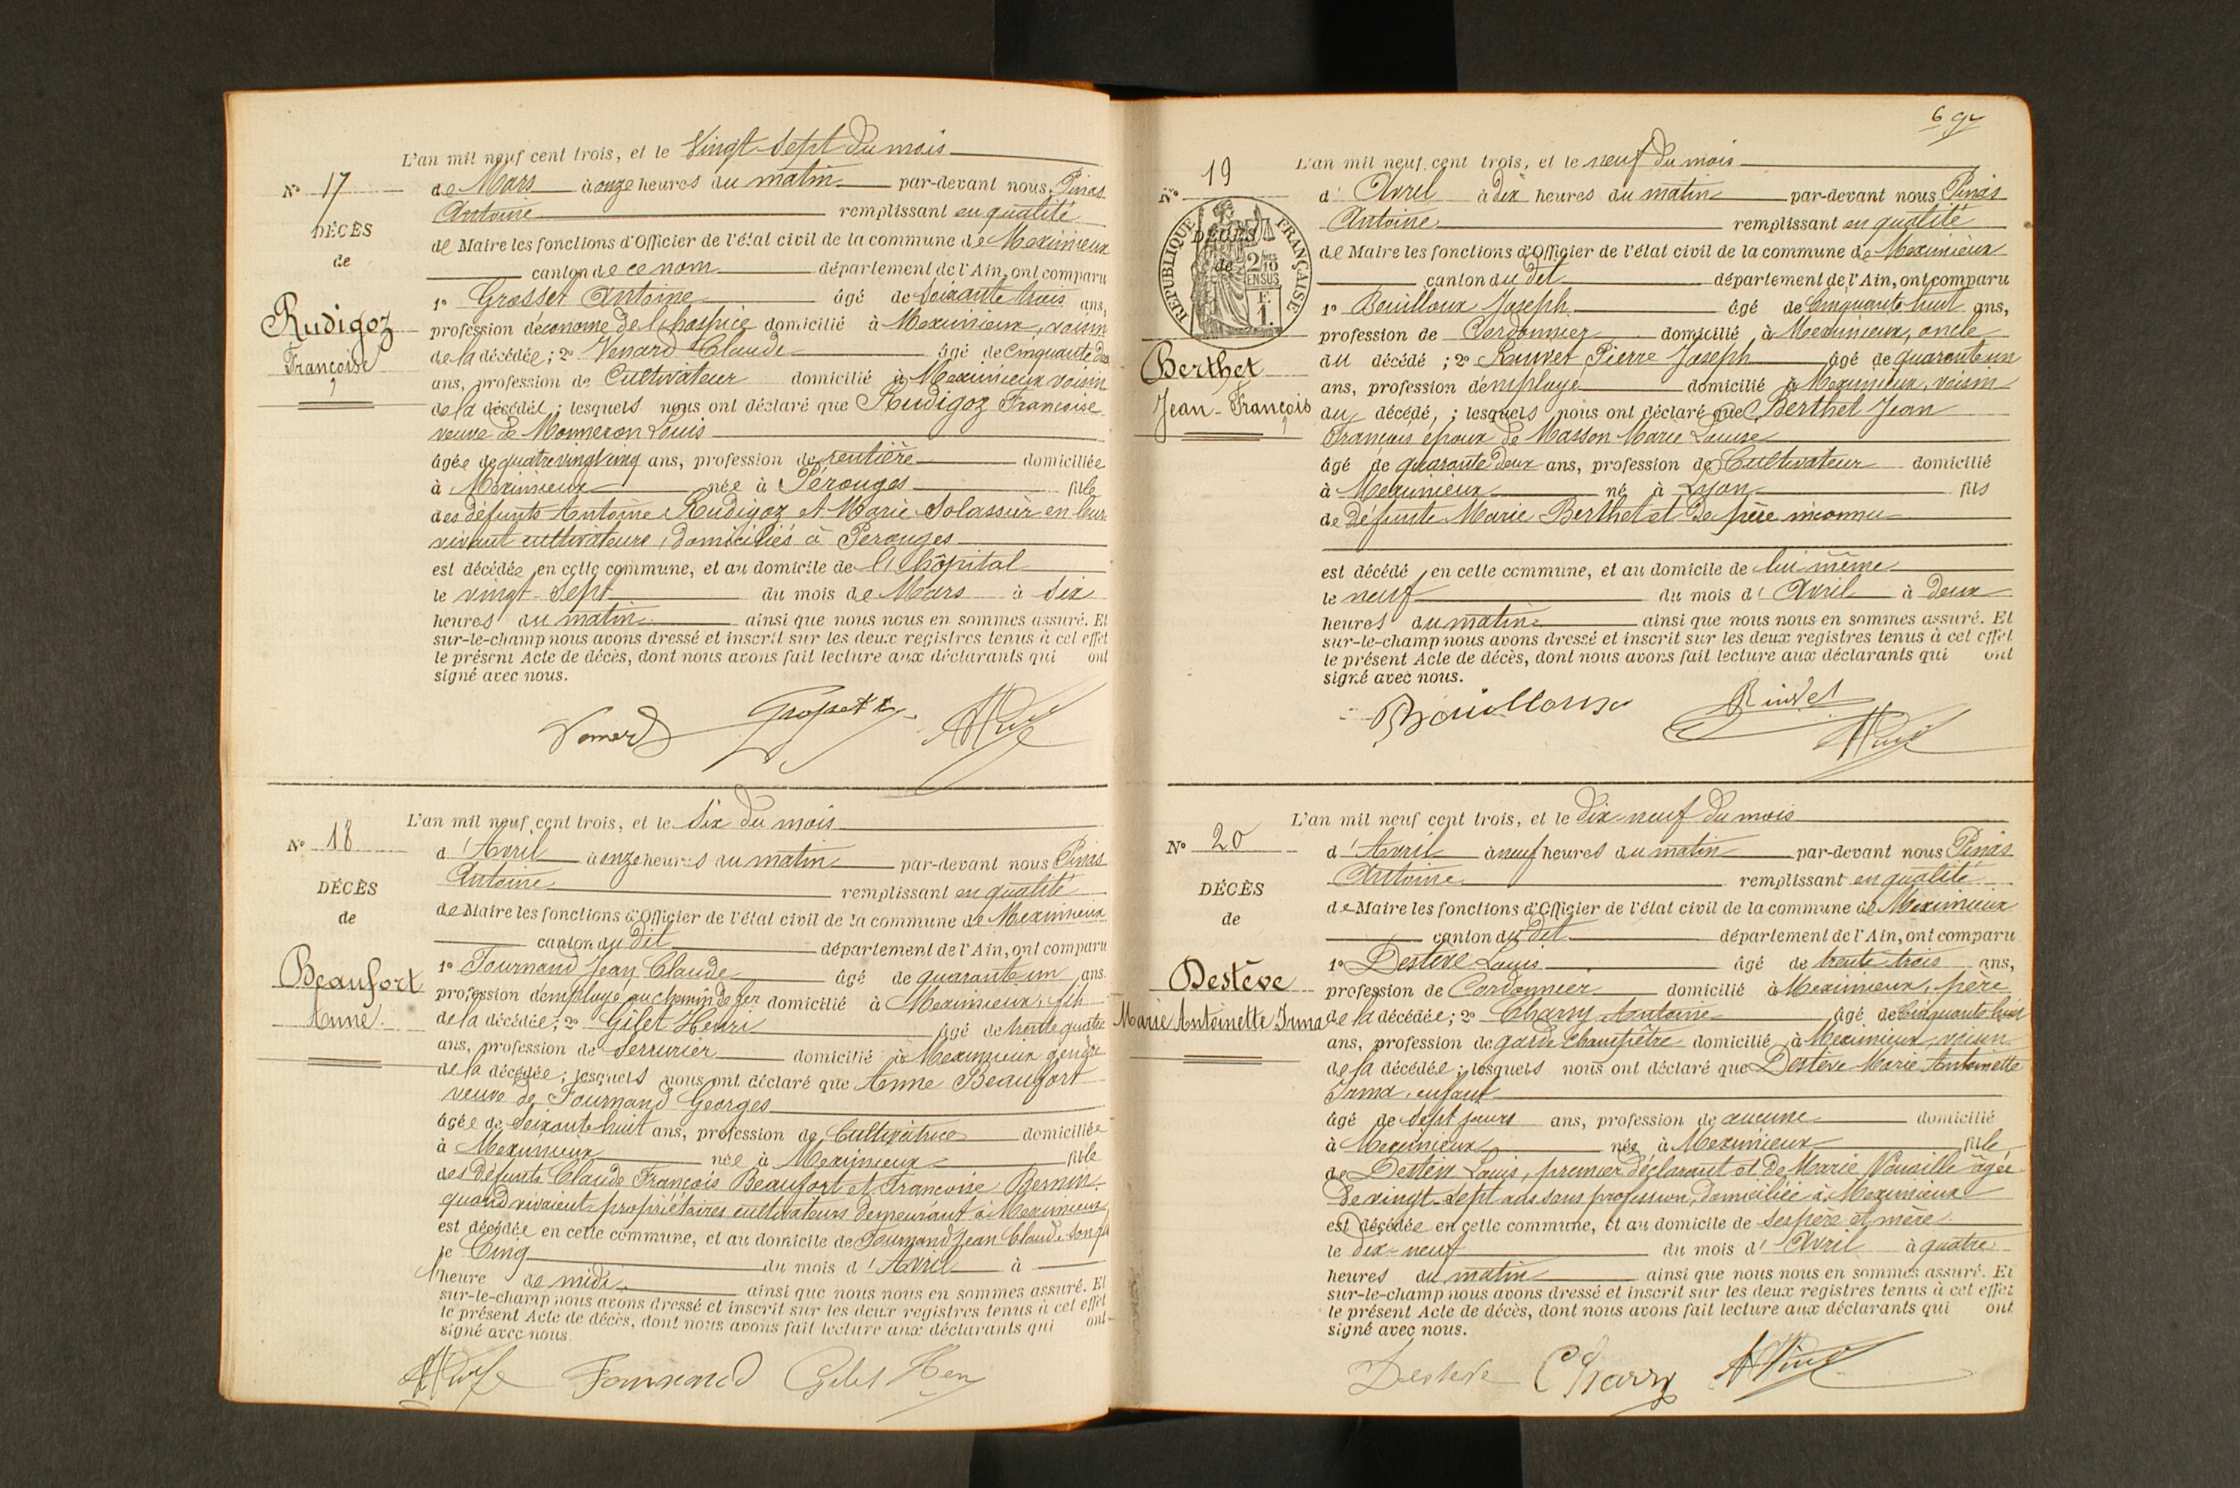 L'an mil neuf cent trois, et le Vingt-Sept du mois
N° 17
de Mars à onze heures du matin par-devant nous Pinas
Antoine remplissant en qualité
DÉCÈS
de Maire les fonctions d'Officier de l'état civil de la commune de Meximieux
de
canton de ce nom département de l'Ain, ont comparu
1° Grosset Antoine âgé de soixante trois ans,
Rudigoz
profession d'économe de l'hospice domicilié à Meximieux, voisin
Françoise
de la décédée; 2° Venard Claude âgé de cinquante
ans, profession de Cultivateur domicilié à Meximieux voisin
de la décédée; lesquels nous ont déclaré que Rudigoz Françoise
veuve de Moimeron Louis
âgée de quatre vingt cinq ans, profession de rentière domiciliée
à Meximieux née à Pérouges fille
des défunts Antoine Rudigoz et Marie Solassier en leur
vivant cultivateurs, domiciliés à Perouges
est décédée en cette commune, et au domicile de l'hôpital
le vingt-sept du mois de Mars à six
heures du matin ainsi que nous nous en sommes assuré. Et
sur-le-champ nous avons dressé et inscrit sur les deux registres tenus à cet effet
le présent Acte de décès, dont nous avons fait lecture aux déclarants qui ont
signé avec nous.
Venard Grosset
L'an mil neuf cent trois, et le six du mois
N° 18
d'Avril à onze heures du matin par-devant nous Pinas
Antoine remplissant en qualité
DÉCÈS
de Maire les fonctions d'Officier de l'état civil de la commune de Meximieux
de
canton du dit département de l'Ain, ont comparu
1° Fournand Jean Claude âgé de quarante un ans
Beaufort
profession d'employé au chemin de fer domicilié à Meximieux, fils
Anne
de la décédée; 2° Gilet Henri âgé de trente quatre
ans, profession de serrurier domicilié à Meximieux gendre
de la décédée; lesquels nous ont déclaré que Anne Beaufort
veuve de Fournand Georges
âgée de soixante huit ans, profession de Cultivatrice domiciliée
à Meximieux née à Meximieux fille
des défunts Claude François Beaufort et Françoise Bernin
quand vivaient propriétaires cultivateurs demeurant à Meximieux
est décédée en cette commune, et au domicile de Fournand Jean Claude son fils
le Cinq du mois d'Avril à
heure de midi ainsi que nous nous en sommes assuré. Et
sur-le-champ nous avons dressé et inscrit sur les deux registres tenus à cet effet
le présent Acte de décès, dont nous avons fait lecture aux déclarants qui ont
signé avec nous.
Fournand Gilet Hen
6
L'an mil neuf cent trois, et le neuf du mois
N° 19
d'Avril à dix heures du matin par-devant nous Pinas
Antoine remplissant en qualité
RÉPUBLIQUE FRANÇAISE
DÉCÈS
de Maire les fonctions d'Officier de l'état civil de la commune de Meximieux
de
2/10 EN SUS
canton du dit département de l'Ain, ont comparu
F. 1.
1° Bouilloux Joseph âgé de cinquante huit ans,
profession de Cordonnier domicilié à Meximieux, oncle
Berthet
du décédé; 2° Rauvet Pierre Joseph âgé de quarante un
ans, profession d'employé domicilié à Meximieux, voisin
Jean-François
du décédé; lesquels nous ont déclaré que Berthet Jean
François époux de Masson Marie Louise
âgé de quarante deux ans, profession de Cultivateur domicilié
à Meximieux né à Lyon fils
de défunte Marie Berthet et de père inconnu
est décédé en cette commune, et au domicile de lui même
le neuf du mois d'Avril à deux
heures du matin ainsi que nous nous en sommes assuré. Et
sur-le-champ nous avons dressé et inscrit sur les deux registres tenus à cet effet
le présent Acte de décès, dont nous avons fait lecture aux déclarants qui ont
signé avec nous.
Bouilloux
L'an mil neuf cent trois, et le dix-neuf du mois
N° 20
d'Avril à neuf heures du matin par-devant nous Pinas
Antoine remplissant en qualité
DÉCÈS
de Maire les fonctions d'Officier de l'état civil de la commune de Meximieux
de
canton du dit département de l'Ain, ont comparu
1° Destève Louis âgé de trente trois ans,
Destève
profession de Cordonnier domicilié à Meximieux, père
Marie Antoinette Irma
de la décédée; 2° Charry Antoine âgé de cinquante
ans, profession de garde Champêtre domicilié à Meximieux, voisin
de la décédée; lesquels nous ont déclaré que Destève Marie Antoinette
Irma, enfant
âgé de sept jours ans, profession de aucune domicilié
à Meximieux née à Meximieux fille
de Destève Louis, premier déclarant et de Marie Vouaille âgée
de vingt-sept ans sans profession, domiciliée à Meximieux
est décédée en cette commune, et au domicile de ses père et mère
le dix-neuf du mois d'Avril à quatre
heures du matin ainsi que nous nous en sommes assuré. Et
sur-le-champ nous avons dressé et inscrit sur les deux registres tenus à cet effet
le présent Acte de décès, dont nous avons fait lecture aux déclarants qui ont
signé avec nous.
Desteve Charry